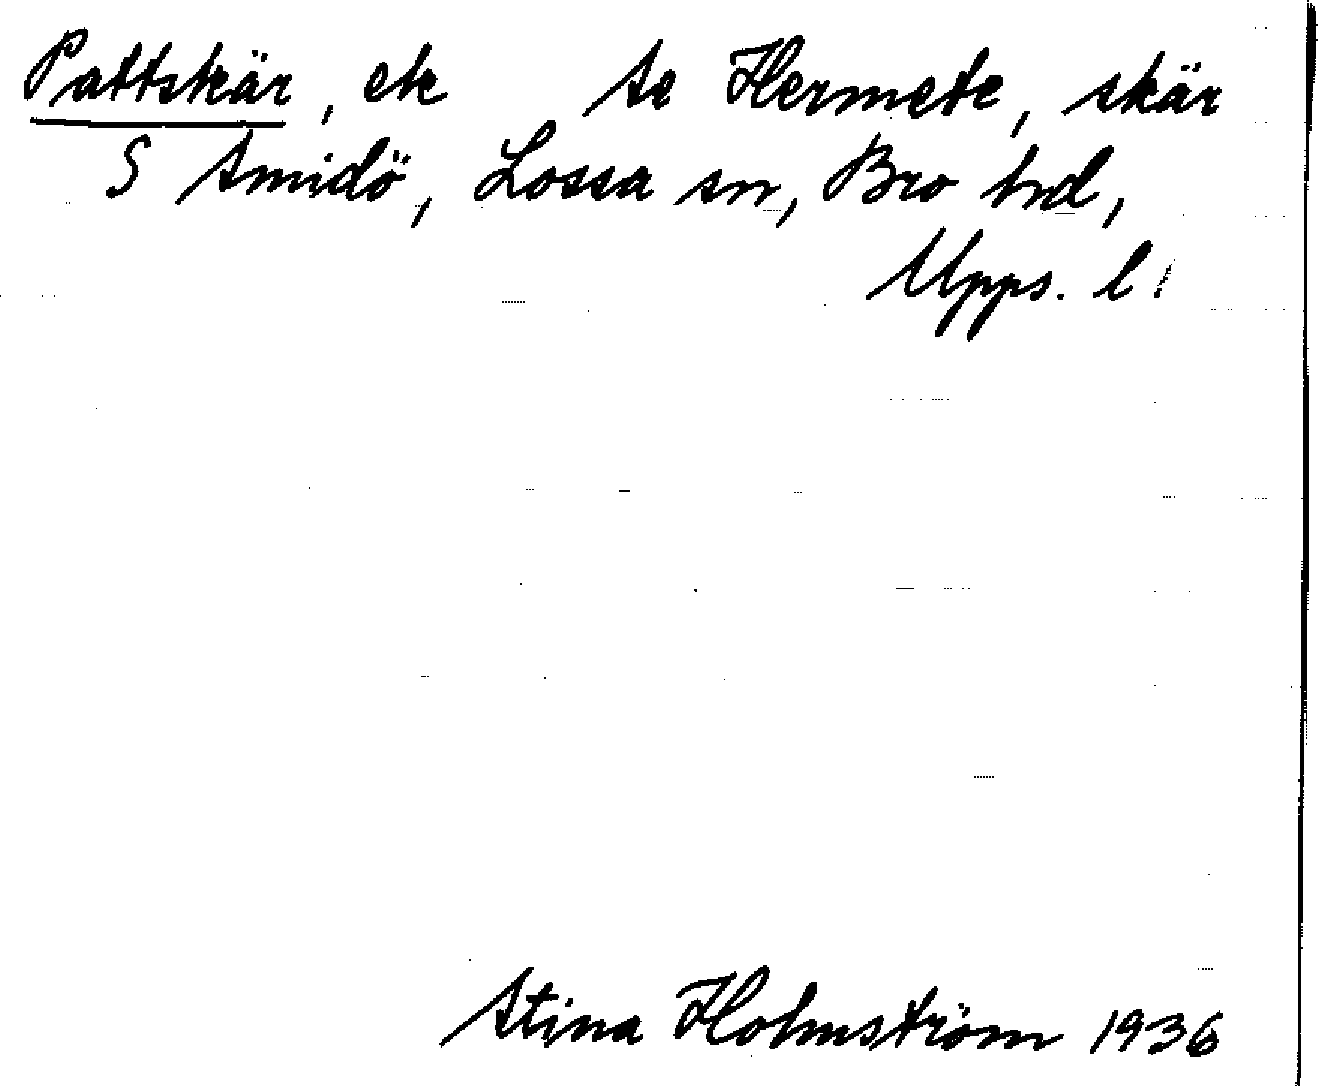 Pattskär, ek Se Hermete, skär
S Smidö, Lossa sn, Bro hd,
Upps. l.
Stina Holmström 1936